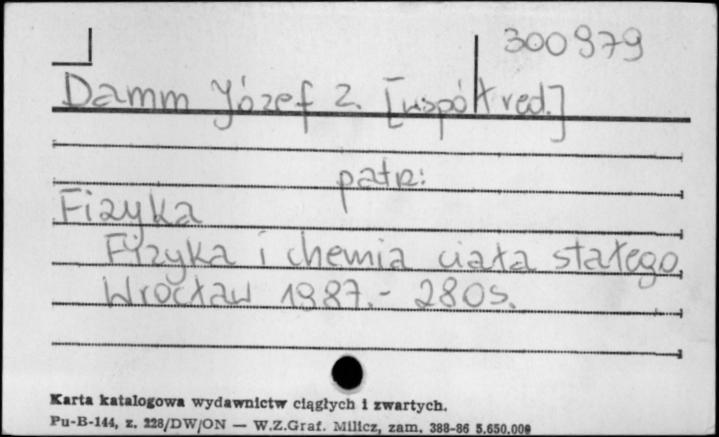 300979
Damm Józef Z. [współred.]
patrz:
Fizyka
Fizyka i chemia ciała stałego
Wrocław 1987.- 280s.
Karta katalogowa wydawnictw ciągłych i zwartych.
Pu-B-144, z. 228/DW/ON — W.Z.Graf. Milicz, zam. 388-86 5.650.000